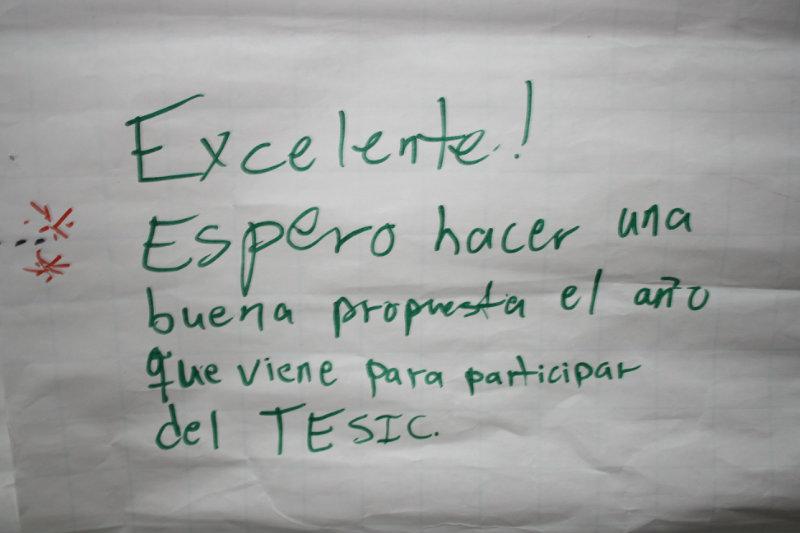 Excelente!
Espero hacer una
buena propuesta el año
que viene para participar
del TESIC.